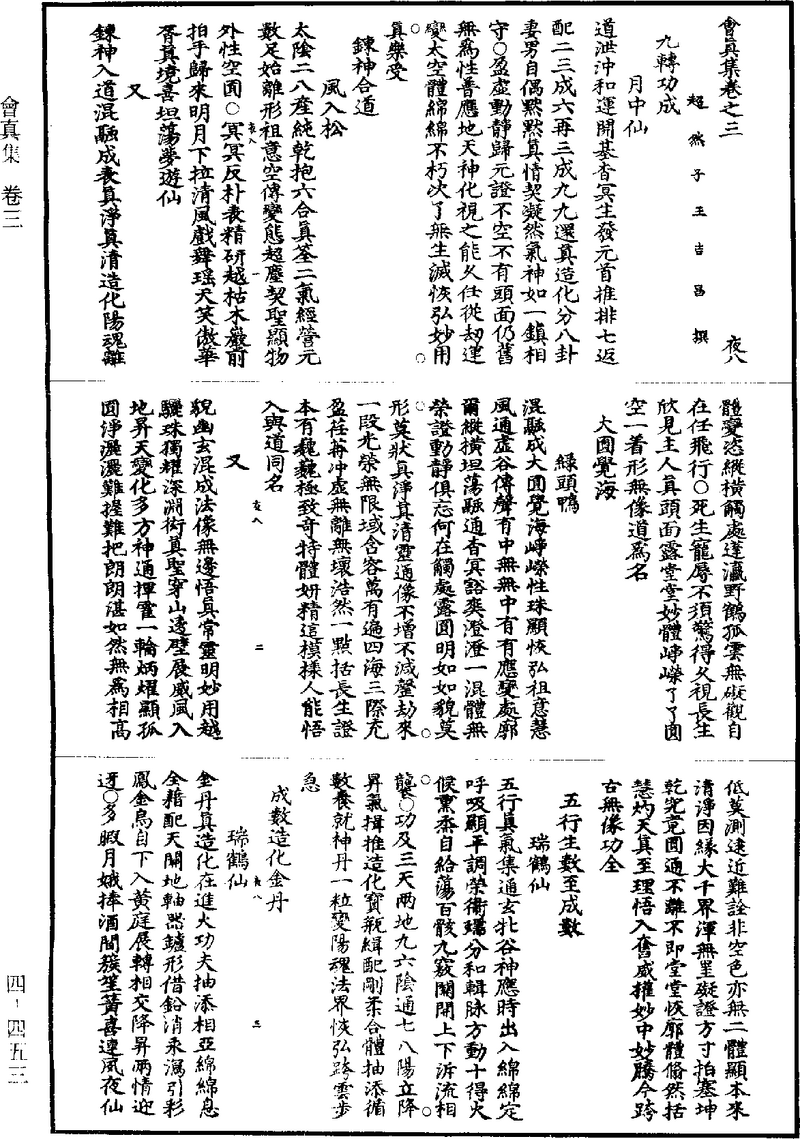 會真集卷之三　夜八
超然子王吉昌撰
九轉功成
月中仙
道泄沖和運開基杳冥生發元首推排七返
配二三成六再三成九九還真造化分八卦
妻男自偶默默真情契凝然氣神如一鎮相
守○盈虛動靜歸元證不空不有頭面仍舊
無為性普應地天神化視之能久任從劫運
變太空體綿綿不朽次了無生滅恢弘妙用
真樂受
鍊神合道
風入松
太陰二八產純乾抱六合真筌二氣經營元
數足始離形祖意空傳變態超塵契聖顯物
外性空圓○冥冥反朴表精研越枯木巖前
拍手歸來明月下拉清風戲舞瑤天笑傲華
胥真境喜坦蕩夢遊仙
又
鍊神入道混融成表真淨真清造化陽魂離
體變恣縱橫觸處蓬瀛野鶴孤雲無礙觀自
在任飛行○死生寵辱不須驚得久視長生
欣見主人真頭面露堂堂妙體崢嶸了了圓
空一着形無像道為名
大圓覺海
綠頭鴨
混融成大圓覺海崢嶸性珠顯恢弘祖意慧
風通虛谷傳聲有中無無中有有應變處廓
爾縱橫坦蕩融通杳冥谿奕澄澄一混體無
榮證動靜俱忘何在觸處露圓明如如貌莫
形莫狀真淨真清靈通像不增不減塵劫來
一段光榮無限域含容萬有遍四海三際充
盈荏苒沖虛無離無壞浩然一點括長生證
本有巍巍極致奇特體妍精這模樣人能悟
入與道同名
又
貌幽玄混成法像無邊悟真常靈明妙用越
驪珠獨耀深淵術真聖穿山透壁展威風入
地昇天變化多方神通揮霍一輪炳耀顯孤
圓淨灑灑難捉難把朗朗湛如然無為相高
低莫測遠近難詮非空色亦無二體顯本來
清淨因緣大千界渾無罣礙證方寸拍塞坤
乾究竟圓通不離不即堂堂恢廓體翛然括
慧灼天真至理悟入奮威權妙中妙騰今跨
古無像功全
五行生數至成數
瑞鶴仙
五行真氣集通玄牝谷神應時出入綿綿定
呼吸顯平調榮衛蠕分和輯脉方動十得火
候熏烝自給蕩百骸九竅開閉上下泝流相
襲○功及三天兩地九六陰通七八陽立降
昇氣揖推造化寶瓶緝配剛柔合體抽添循
數養就神丹一粒變陽魂法界恢弘跨雲步
急
成數造化金丹
瑞鶴仙
金丹真造化在進火功夫抽添相亞綿綿息
全藉配天關地軸器鑪形借鉛消汞瀉引彩
鳳金烏自下入黃庭展轉相交降昇兩情迎
迓○多暇月娥捧酒間簇笙簧喜連風夜仙
會真集　卷三
四‐四五三